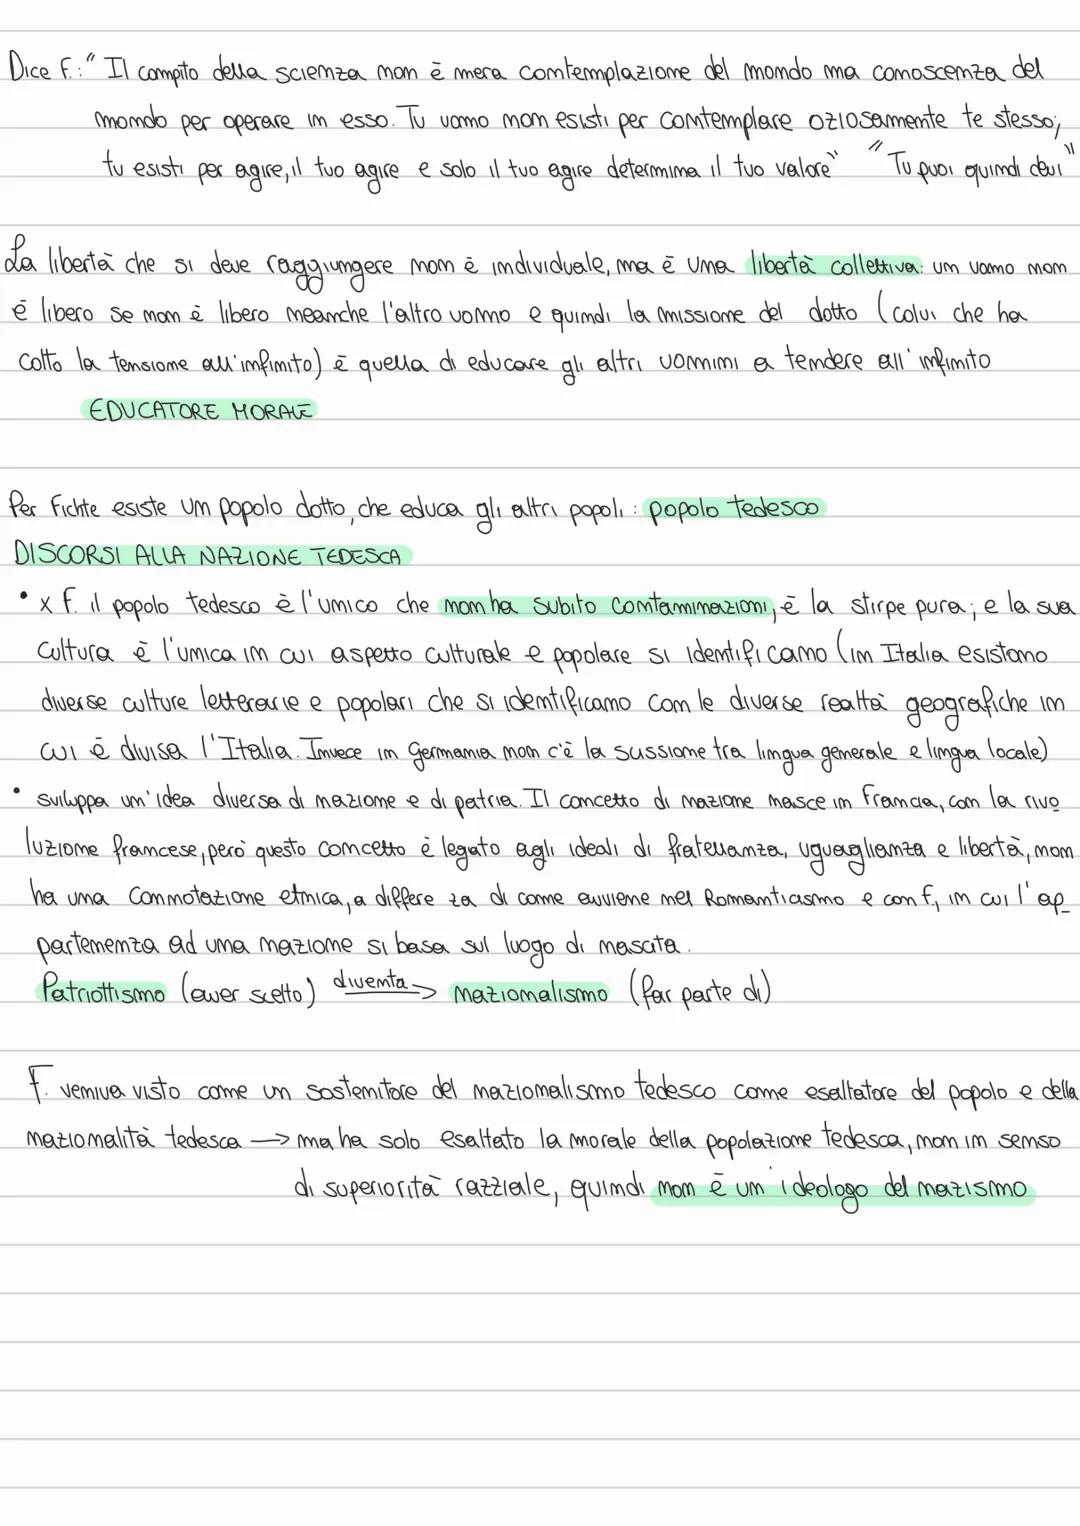 Dice F.: "Il compito della scienza non è mera contemplazione del mondo ma conoscenza del
mondo per operare in esso. Tu uomo non esisti per contemplare oziosamente te stesso;
tu esisti per agire, il tuo agire e solo il tuo agire determina il tuo valore" "Tu puoi quindi devi"
La libertà che si deve raggiungere non è individuale, ma è una libertà collettiva: un uomo non
è libero se non è libero neanche l'altro uomo e quindi la missione del dotto (colui che ha
colto la tensione all'infinito) è quella di educare gli altri uomini a tendere all'infinito
EDUCATORE MORALE
Per Fichte esiste un popolo dotto, che educa gli altri popoli: popolo tedesco
DISCORSI ALLA NAZIONE TEDESCA
• x F. il popolo tedesco è l'unico che non ha subito contaminazioni, è la stirpe pura; e la sua
cultura è l'unica in cui aspetto culturale e popolare si identificano (in Italia esistono
diverse culture letterarie e popolari che si identificano con le diverse realtà geografiche in
cui è divisa l'Italia. Invece in Germania non c'è la sussione tra lingua generale e lingua locale)
• sviluppa un'idea diversa di nazione e di patria. Il concetto di nazione nasce in Francia, con la rivo
luzione francese, però questo concetto è legato agli ideali di fratellanza, uguaglianza e libertà, non
ha una connotazione etnica, a differe za di come avviene nel Romanticismo e con F, in cui l'ap_
partenenza ad una nazione si basa sul luogo di nascita.
Patriottismo (aver scelto) diventa → nazionalismo (far parte di)
F. veniva visto come un sostenitore del nazionalismo tedesco come esaltatore del popolo e della
nazionalità tedesca → ma ha solo esaltato la morale della popolazione tedesca, non in senso
di superiorità razziale, quindi non è un ideologo del nazismo